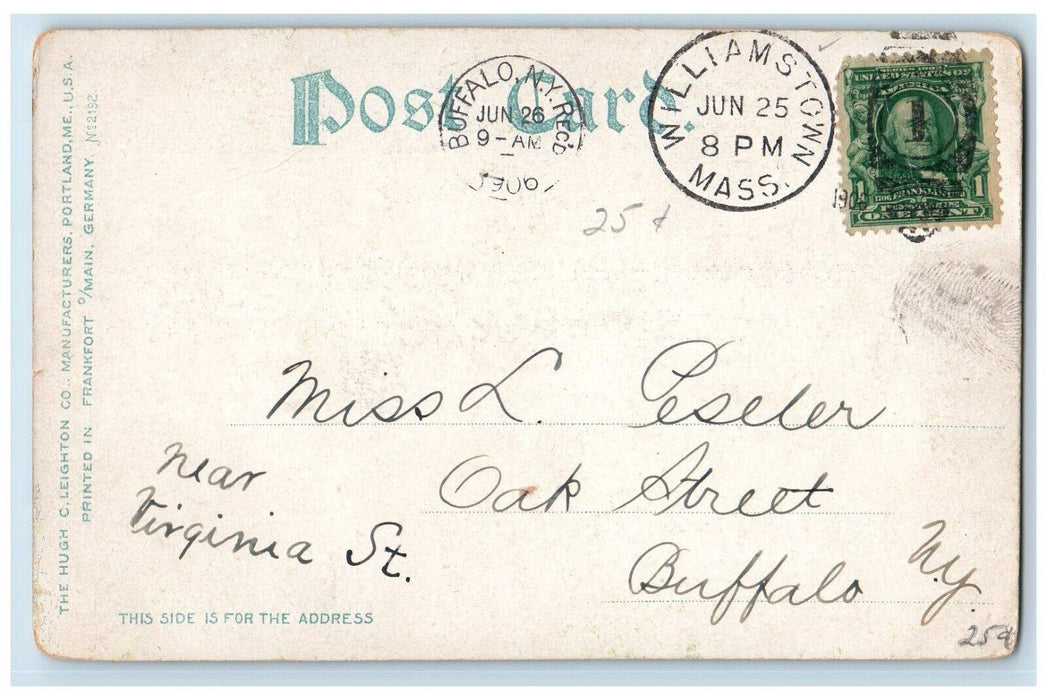 Post Card.
BUFFALO, N.Y. REC'D
JUN 26
9-AM
1906
WILLIAMSTOWN
JUN 25
8 PM
MASS.
190
SERIES 1902
UNITED STATES OF
1
1 FRANKLIN 1
ONE CENT
25¢
Miss L. Peseler
near Oak Street
Virginia St.
Buffalo N.Y.
THIS SIDE IS FOR THE ADDRESS
25¢
THE HUGH C. LEIGHTON CO., MANUFACTURERS, PORTLAND, ME., U.S.A.
PRINTED IN FRANKFORT O/MAIN, GERMANY. No 2192.